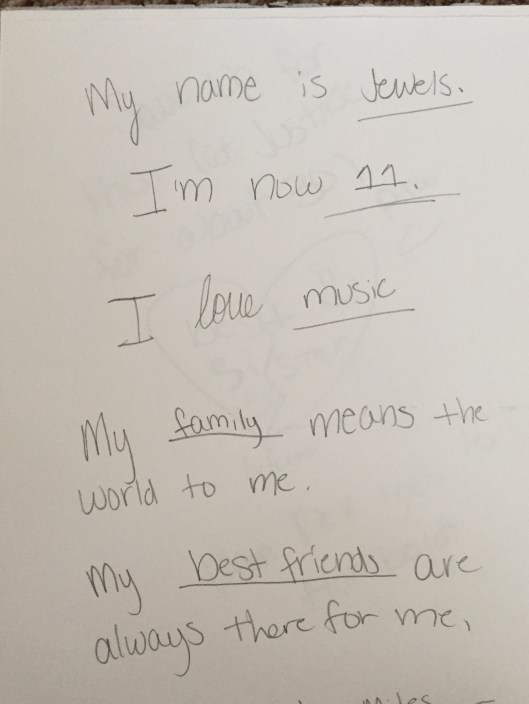 My name is Jewels.
I'm now 11.
I love music
My family means the
world to me.
My best friends are
always there for me,
miles